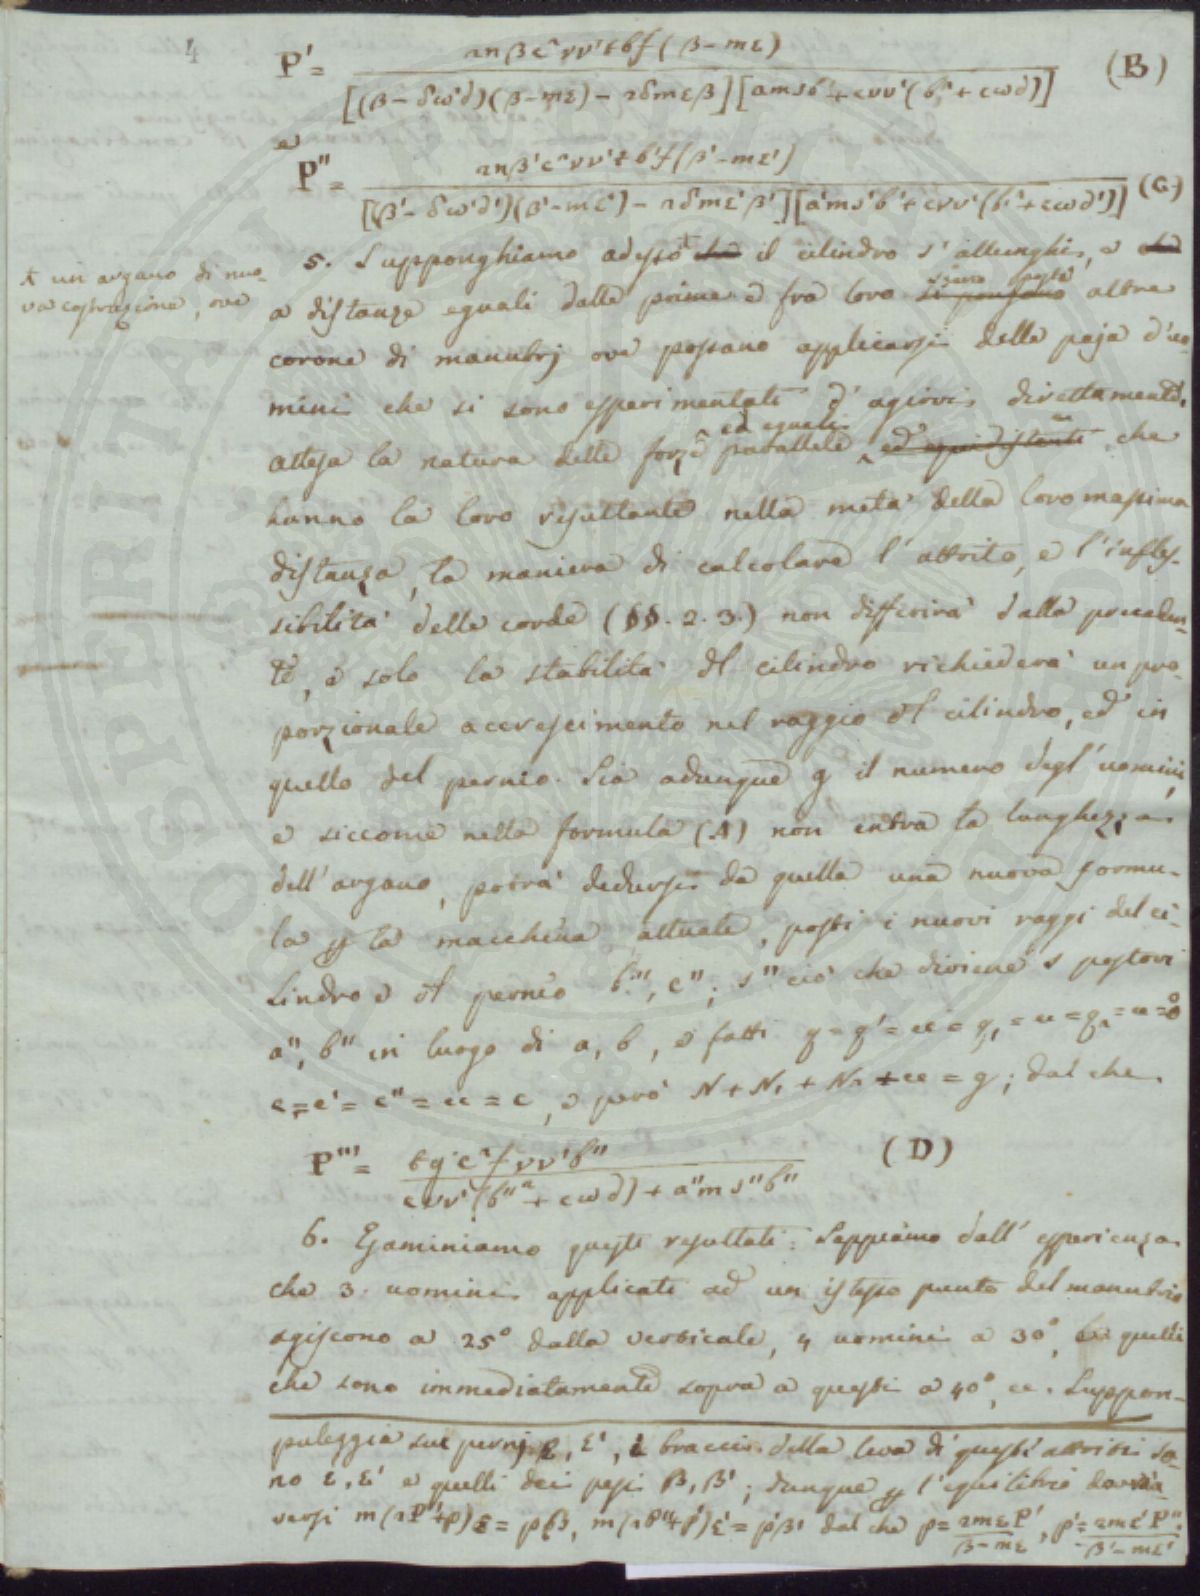 4
P' = 2nβc²νν'tbf(β-mε) / [(β-δω'∂)(β-mε)-2δmεβ][amsb'+cνν'(b'²+cω∂)] (B)
e
P'' = 2nβ'c²νν'tb'f(β'-mε') / [(β'-δω'∂')(β'-mε')-2δmε'β'][a'ms'b'+cνν'(b'²+cω∂')] (C)
5. Supponghiamo adesso † il cilindro s'allunghi, e
† un argano di nuo-
va costruzione, ove
a distanze eguali dalle prime e fra loro siano poste altre
corone di manubrj ove possano applicarsi delle paja d'uo-
mini che si sono esperimentati d'agirvi direttamente,
attesa la natura delle forze parallele ed eguali che
hanno la loro resultante nella metà della loro massima
distanza, la maniera di calcolare l'attrito, e l'infles-
sibilità delle corde (§§. 2. 3.) non differirà dalla preceden-
te, e solo la stabilità del cilindro richiederà un pro-
porzionale accrescimento nel raggio del cilindro, ed in
quello del pernio. Sia adunque g il numero degl'uomini,
e siccome nella formula (A) non entra la lunghezza
dell'argano, potrà dedursi da quella una nuova formu-
la per la macchina attuale, posti i nuovi raggi del ci-
lindro e del pernio b'', c''; s'' ciò che diviene s postovi
a'', b'' in luogo di a, b, e fatti q = q' = ec = q₁ = ec = q₂ = ec = 0
c = c' = c'' = ec = c, e però N + N₁ + N₂ + ec = g; dal che
P''' = tgc²fνν'b'' / cνν'(b''²+cω∂)+a''ms''b'' (D)
6. Esaminiamo questi resultati: Sappiamo dall'esperienza
che 3. uomini applicati ad un istesso punto del manubrio
agiscono a 25° dalla verticale, 4 uomini a 30°, quelli
che sono immediatamente sopra a questi a 40°, ec. Suppon-
puleggia sui pernj ε, ε', i bracci della leva di questi attriti so-
no ε, ε' e quelli dei pesi β, β'; dunque per l'equilibrio dovrà
aversi m(2P'+p)ε = pβ, m(2P''+p')ε' = p'β' dal che p = 2mεP' / β-mε, p' = 2mε'P'' / β'-mε'